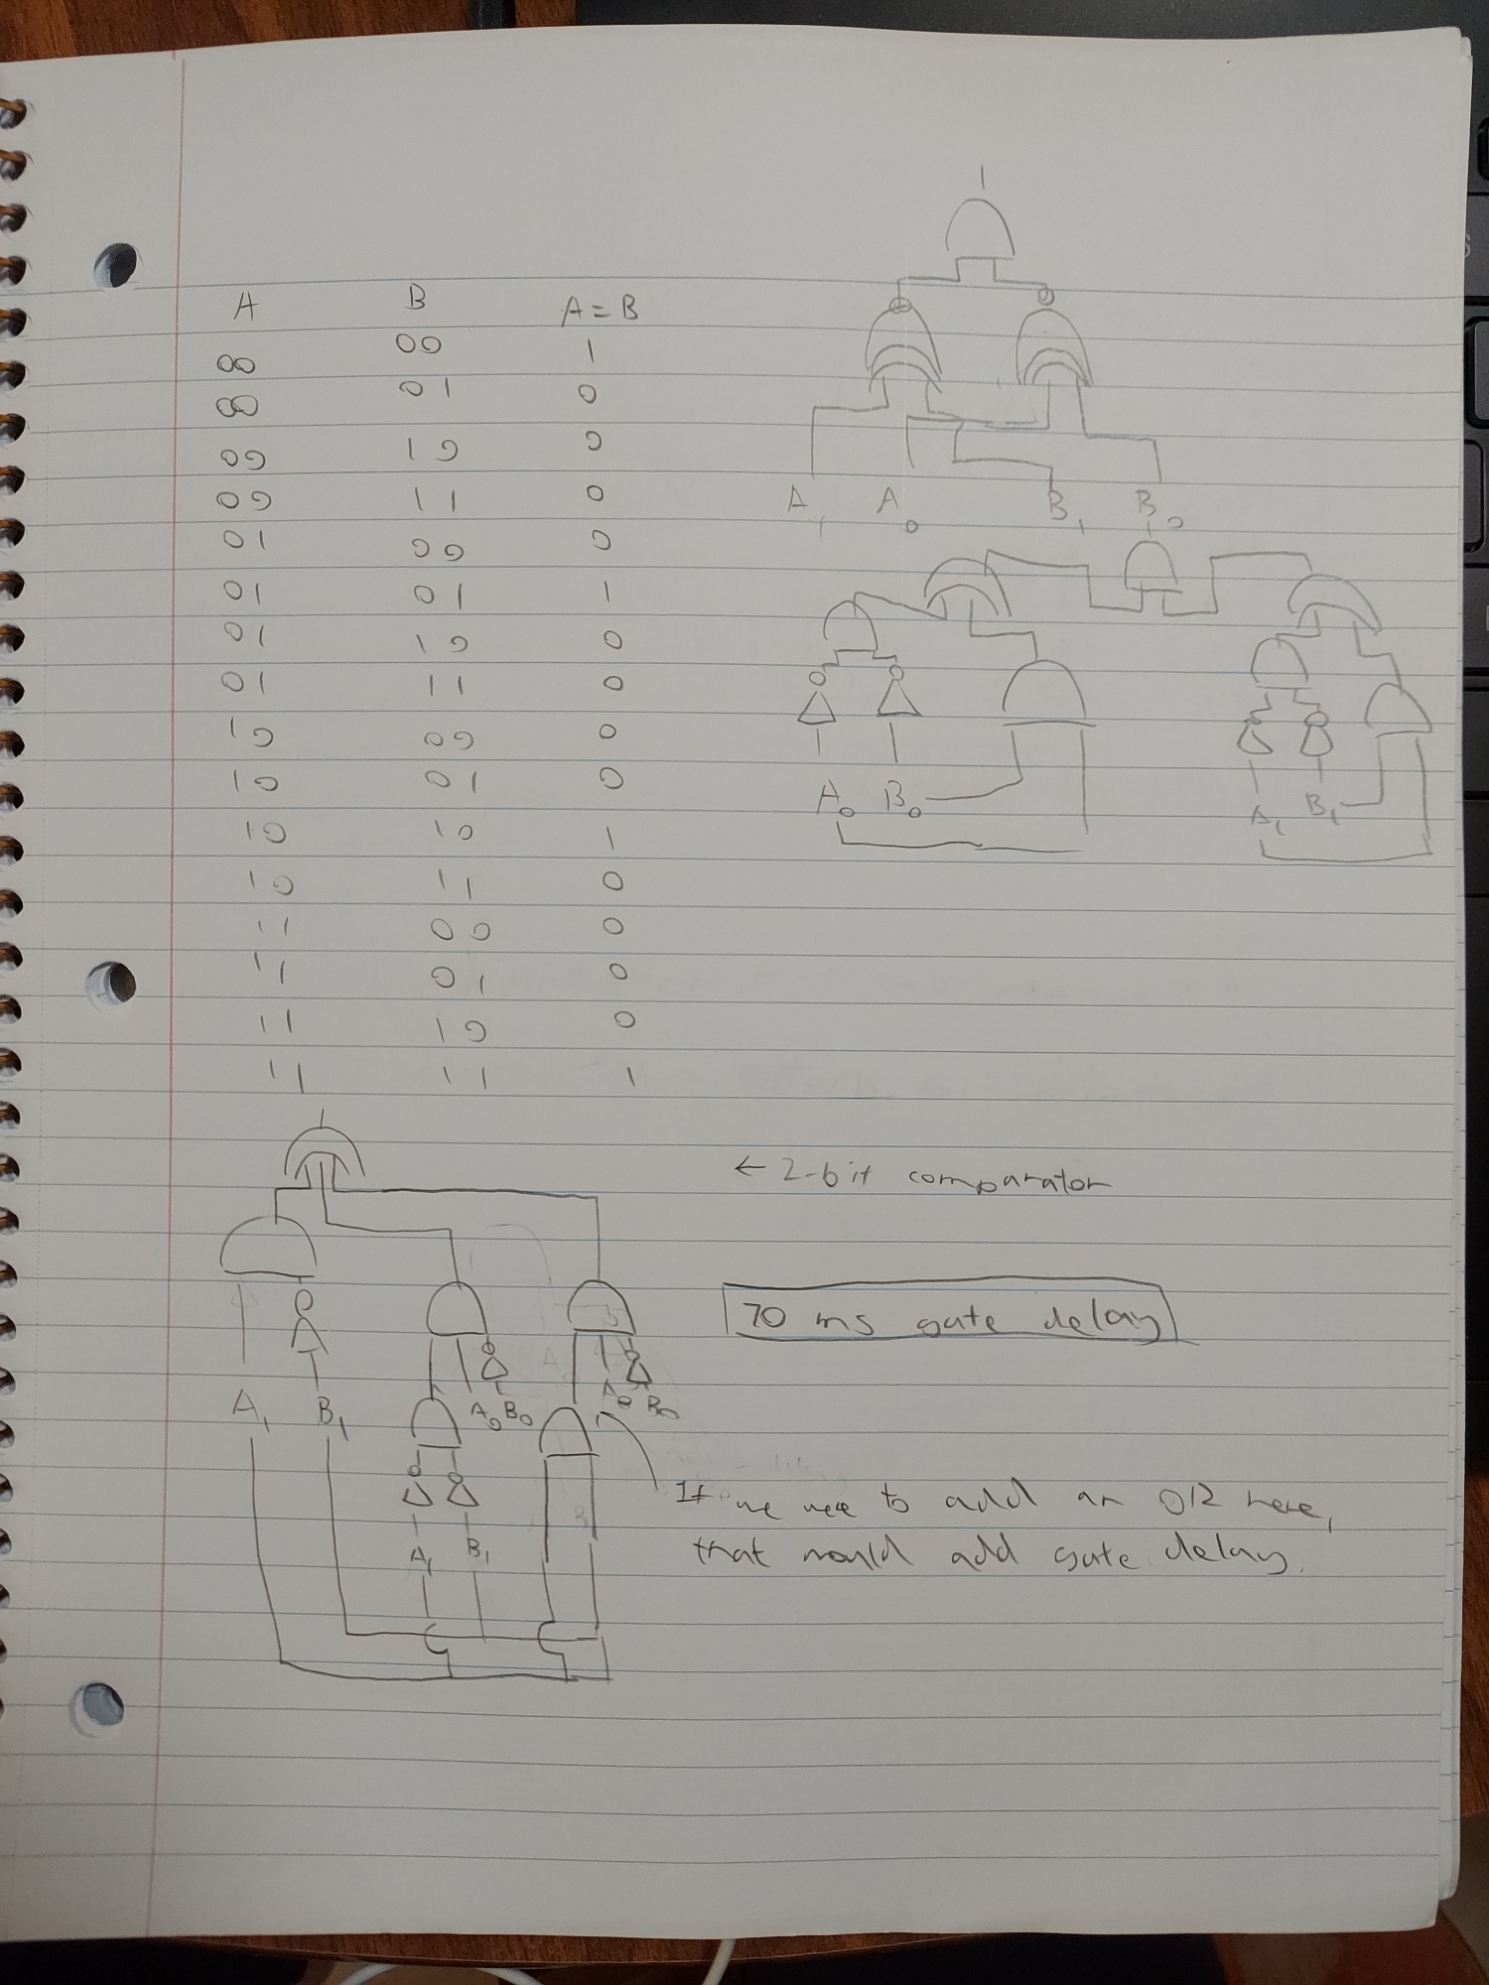 A B A = B
00 00 1
00 01 0
00 10 0
00 11 0
01 00 0
01 01 1
01 10 0
01 11 0
10 00 0
10 01 0
10 10 1
10 11 0
11 00 0
11 01 0
11 10 0
11 11 1
A₁ A₀ B₁ B₀
A₀ B₀ A₁ B₁
← 2-bit comparator
70 ms gate delay
A₁ B₁ A₀ B₀ A₀ B₀
A₁ B₁
If we were to add an OR here,
that would add gate delay.